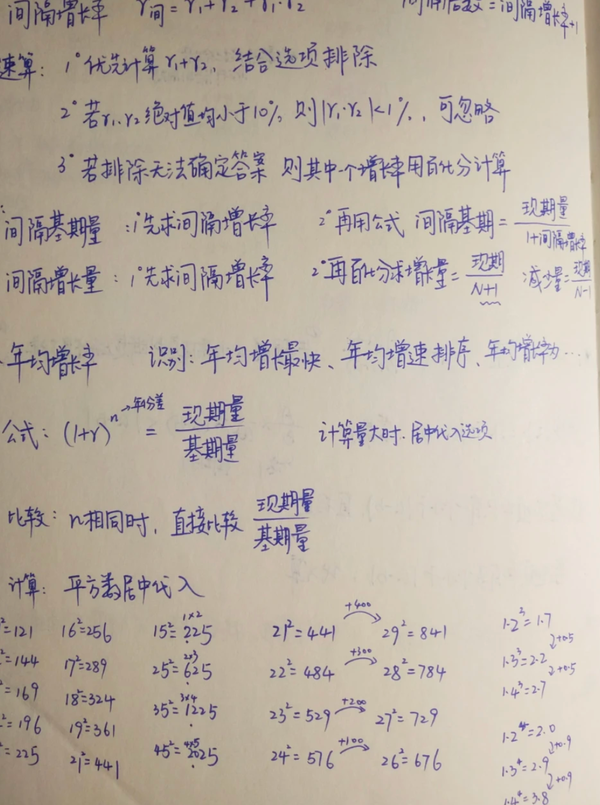 间隔增长率 r间=r₁+r₂+r₁·r₂ 间隔倍数=间隔增长率+1
速算: 1°优先计算r₁+r₂, 结合选项排除
2°若r₁、r₂绝对值均小于10%, 则|r₁·r₂|<1%, 可忽略
3°若排除无法确定答案 则其中一个增长率用百化分计算
间隔基期量: 1°先求间隔增长率 2°再用公式 间隔基期=现期量/1+间隔增长率
间隔增长量: 1°先求间隔增长率 2°再百化分求增长量=现期/N+1 减少量=现期/N-1
年均增长率 识别: 年均增长最快、年均增速排序、年均增长率为…
公式: (1+r)ⁿ→年份差 = 现期量/基期量 计算量大时.居中代入选项
比较: n相同时, 直接比较 现期量/基期量
计算: 平方数居中代入
²=121 16²=256 15²=225 1×2 21²=441 +400 29²=841 1.2³=1.7
+0.5
²=144 17²=289 25²=625 2×3 22²=484 +300 28²=784 1.3³=2.2
+0.5
²=169 18²=324 35²=1225 3×4 23²=529 +200 27²=729 1.4³=2.7
²=196 19²=361 45²=2025 4×5 24²=576 +100 26²=676 1.2⁴=2.0
+0.9
²=225 21²=441 1.3⁴=2.9
+0.9
1.4⁴=3.8